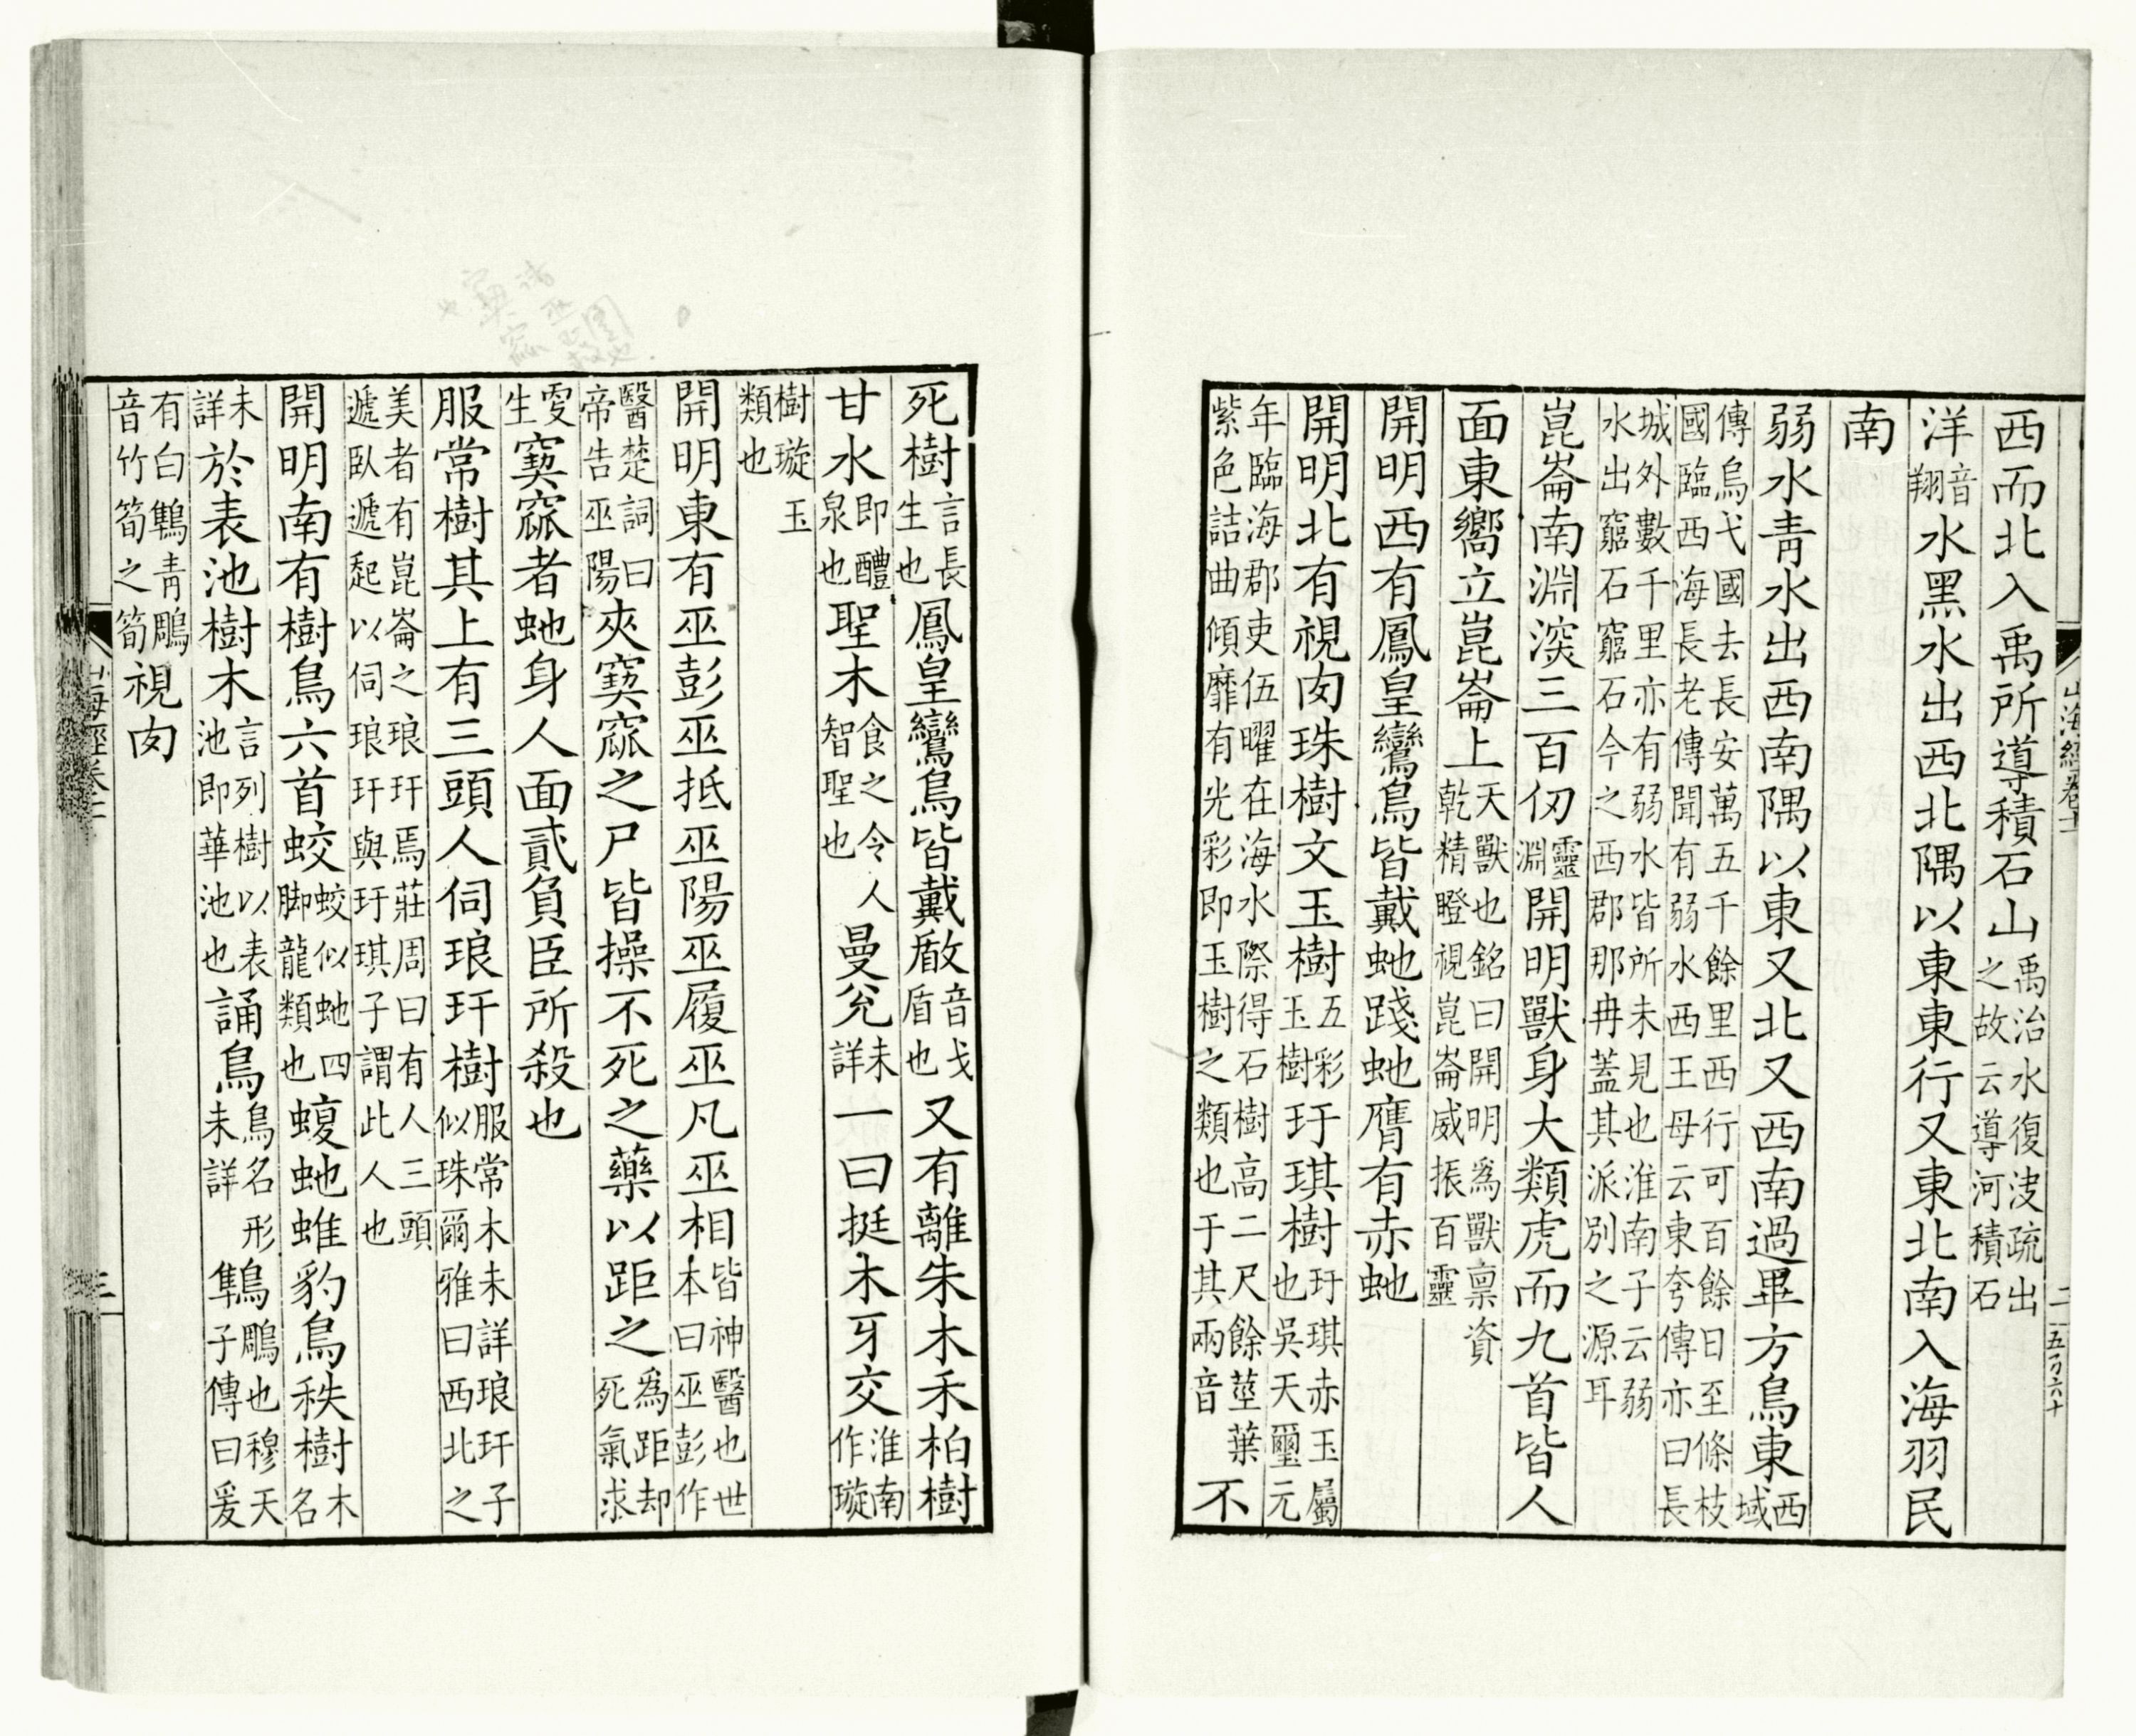 西而北入禹所導積石山禹治水復決疏出之故云導河積石
洋音翔水黑水出西北隅以東東行又東北南入海羽民
南
弱水青水出西南隅以東又北又西南過畢方鳥東西域
傳烏弋國去長安萬五千餘里西行可百餘日至條枝國臨西海長老傳聞有弱水西王母云東夸傳亦曰長
城外數千里亦有弱水皆所未見也淮南子云弱水出窮石窮石今之西郡那冉蓋其派別之源耳
崑崙南淵深三百仞靈淵開明獸身大類虎而九首皆人
面東嚮立崑崙上天獸也銘曰開明爲獸禀資乾精瞪視崑崙威振百靈
開明西有鳳皇鸞鳥皆戴虵踐虵膺有赤虵
開明北有視肉珠樹文玉樹五彩玉樹玗琪樹玗琪赤玉屬也吳天璽元
年臨海郡吏伍曜在海水際得石樹高二尺餘莖葉紫色詰曲傾靡有光彩即玉樹之類也于其兩音不
山海經卷十一
二
五百六十
死樹言長生也鳳皇鸞鳥皆戴瞂音戈盾也又有離朱木禾柏樹
甘水即醴泉也聖木食之令人智聖也曼兊未詳一曰挺木牙交淮南作璇
樹璇玉類也
開明東有巫彭巫抵巫陽巫履巫凡巫相皆神醫也世本曰巫彭作
醫楚詞曰帝告巫陽夾窫窳之尸皆操不死之藥以距之爲距却死氣求
更生窫窳者虵身人面貳負臣所殺也
服常樹其上有三頭人伺琅玕樹服常木未詳琅玕子似珠爾雅曰西北之
美者有崑崙之琅玕焉莊周曰有人三頭遞臥遞起以伺琅玕與玗琪子謂此人也
開明南有樹鳥六首蛟蛟似虵四脚龍類也蝮虵蜼豹鳥秩樹木名
未詳於表池樹木言列樹以表池即華池也誦鳥鳥名形未詳鶽鵰也穆天子傳曰爰
有白鶽青鵰音竹筍之筍視肉
山海經卷十一
三